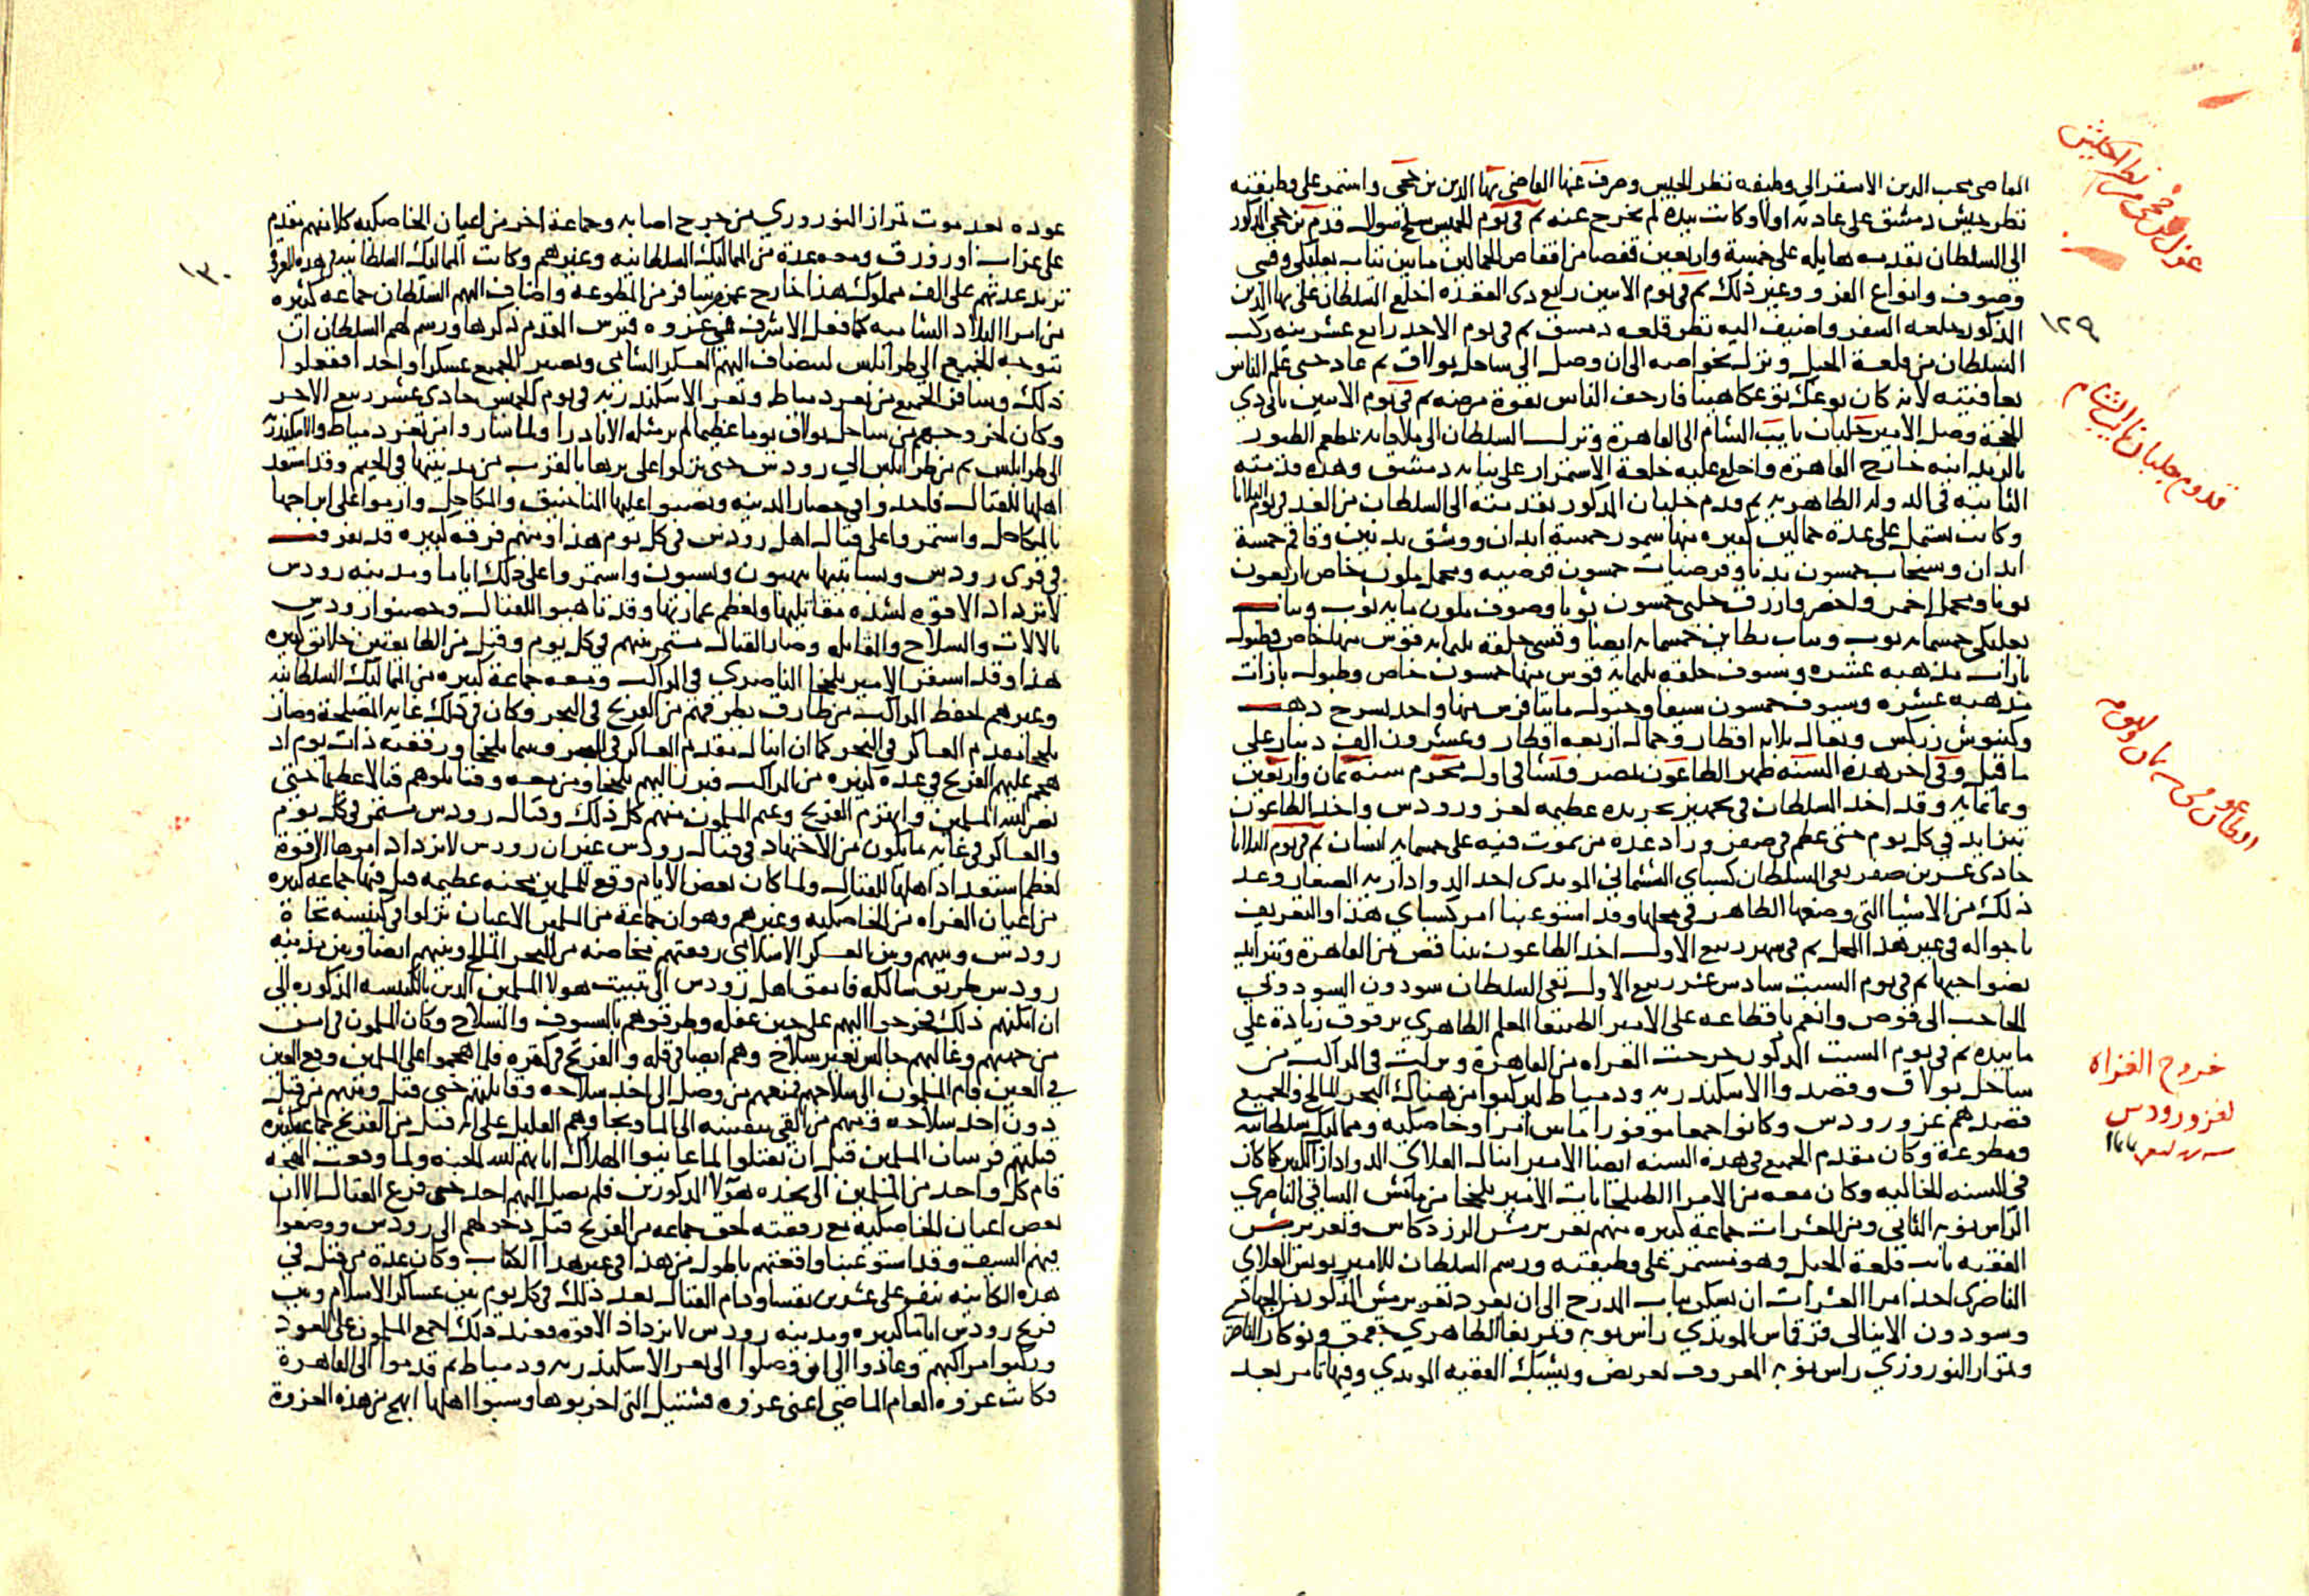 القاضي محب الدين الاشقر الي وظيفه نظر الجيش وصرف عنها القاضي بها الدين بن حجي واستمر على وظيفته
نظر جيش دمشق على عادته اولا وكانت بيده لم تخرج عنه ثم في يوم الخميس سلخ شوال قدم بن حجي المذكور
الى السلطان تقدمه هايله على خمسة واربعين قفصا من اقفاص الحمالين ما بين ثياب بعلبكي وقسي
وصوف وانواع الفرو وغير ذلك ثم في يوم الاثنين رابع ذي القعدة اخلع السلطان على بها الدين
المذكور خلعه السفر واضيف اليه نظر قلعه دمشق ثم في يوم الاحد رابع عشرينه ركب
السلطان من قلعة الجبل ونزل بخواصه الى ان وصل الى ساحل بولاق ثم عاد حتى علم الناس
بعافيته لانه كان توعك توعكا هينا فارجف الناس بقوة مرضه ثم في يوم الاثنين ثاني ذي
الحجة وصل الامير جلبان نايب الشام الى القاهرة ونزل السلطان الى ملاقاته بمطعم الطيور
بالريدانيه خارج القاهرة واخلع عليه خلعة الاستمرار على نيابه دمشق وهذه قدمته
الثانيه في الدوله الظاهريه ثم قدم جلبان المذكور تقدمته الى السلطان من الغد في يوم الثلاثا
وكانت تشتمل على عدة حمالين كثيره منها سمور خمسة ابدان ووشق بدنين وقاقم خمسة
ابدان وسنجاب خمسون بدنا وقرضيات خمسون قرضيه ومخمل ملون خاص اربعون
ثوبا ومخمل احمر واخضر وازرق حلبي خمسون ثوبا وصوف ملون مايه ثوب وثياب
بعلبكي خمسمايه ثوب وثياب بطاين خمسمايه ايضا وقسي حلقه ثلثمايه قوس منها خاص وطبول
بازات مذهبه عشره وسيوف حلقه ثلثمايه قوس منها خمسون خاص وطبول بازات
مذهبه عشره وسيوف خمسون سيفا وخيول مايتا فرس منها واحد بسرج ذهب
وكنبوش زركش وبغال ثلاثه اقطار وجمال اربعه اقطار وعشرون الف دينار على
ما قيل وفي اخر هذه السنه ظهر الطاعون بمصر وفشا في اول محرم سنه ثمان واربعين
وثمانمايه وقد اخذ السلطان في تجهيز تجريده عظيمه لغزو رودس واخذ الطاعون
يتزايد في كل يوم حتى عظم في صفر وزاد عدة من يموت فيه على خمسمايه انسان ثم في يوم الثلاثا
حادي عشرين صفر نفى السلطان كسباي الششماني المويدي احد الدواداريه الصغار وعد
ذلك من الاشيا التي وضعها الظاهر في محلها وقد استوعبنا امر كسباي هذا والتعريف
باحواله في غير هذا المحل ثم في شهر ربيع الاول اخذ الطاعون يتناقص من القاهرة ويتزايد
بضواحيها ثم في يوم السبت سادس عشر ربيع الاول نفى السلطان سودون السودوني
الحاجب الى قوص وانعم باقطاعه على الامير الطنبغا المعلم الظاهري برقوق زيادة على
ما بيده ثم في يوم السبت المذكور خرجت الغزاه من القاهرة ونزلت في المراكب من
ساحل بولاق وقصدوا الاسكندريه ودمياط ليركبوا من هناك البحر المالح والجميع
قصدهم غزو رودس وكانوا جمعا موفورا ما بين امرا وخاصكيه ومماليك سلطانيه
ومطوعة وكان مقدم الجميع في هذه السنه ايضا الامير اينال العلاي الدوادار الكبير كما كان
في السنه الخاليه وكان معه من الامرا الطبلخانات الامير يلبخا من مامش الساقي الناصري
الراس نوبه الثاني ومن العشرات جماعة كثيره منهم تغري برمش الزردكاش وتغري برمش
الفقيه نايب قلعة الجبل وهو مستمر على وظيفته ورسم السلطان للامير يونس العلاي
الناصري احد امرا العشرات ان يسكن بباب المدرج الى ان يعود تغري برمش المذكور من الجهاد
وسودون الاينالي قراقاس المويدي راس نوبه وتمربغا الظاهري جقمق ونوكار الناصري
وتمراز النوروزي راس نوبه المعروف بتعريض ويشبك الفقيه المويدي وفيها تامر بعد
عزل بن حجي من نظر الجيش
١٢٩
قدوم جلبان نايب الشام
خروج الغزاه
لغزو رودس
عوده بعد موت تمراز النوروزي من جرح اصابه وجماعة اخر من اعيان الخاصكيه كل منهم مقدم
على غراب او زورق ومعه عدة من المماليك السلطانيه وغيرهم وكانت المماليك السلطانيه في هذه الغزوه
تزيد عدتهم على الف مملوك هذا خارج عمن سافر من المطوعه واضاف اليهم السلطان جماعه كثيره
من امرا البلاد الشاميه كما فعل الاشرف في غزوه قبرس المقدم ذكرها ورسم لهم السلطان ان
يتوجه الجميع الى طرابلس لينضاف اليهم العسكر الشامي ويصير الجميع عسكرا واحدا ففعلوا
ذلك وسافر الجميع من ثغر دمياط وثغر الاسكندريه في يوم الخميس حادي عشر ربيع الاخر
وكان لخروجهم من ساحل بولاق يوما عظيما لم ير مثله الا نادرا ولما ساروا من ثغر دمياط والاسكندريه
الى طرابلس ثم من طرابلس الى رودس حتى نزلوا على برها بالقرب من مدينتها في الخيم وقد استعد
اهلها للقتال فاخذوا في حصار المدينه ونصبوا عليها المناجنيق والمكاحل وارموا على ابراجها
بالمكاحل واستمروا على قتال اهل رودس في كل يوم هذا ومنهم فرقه كبيره قد تفرقت
في قرى رودس وبساتينها ينهبون ويسبون واستمروا على ذلك اياما ومدينه رودس
لا تزداد الا قوه لشده مقاتليها ولعظم عمارتها وقد تاهبوا للقتال وحصنوا رودس
بالالات والسلاح والمقاتله وصار القتال مستمر بينهم في كل يوم وقتل من الطايفتين خلايق كثيره
هذا وقد استقر الامير يلبخا الناصري في المراكب ومعه جماعة كبيره من المماليك السلطانيه
وغيرهم لحفظ المراكب من طارق يطرقهم من الفرنج في البحر وكان في ذلك غايه المصلحة وصار
يلبخا مقدم العساكر في البحر كما ان اينال مقدم العساكر في البر وبينما يلبخا ورفقته ذات يوم اذ
هجم عليهم الفرنج في عدة كثيره من المراكب فبرز اليهم يلبخا ومن معه وقاتلوهم قتالا عظيما حتى
نصر الله المسلمين وانهزم الفرنج وغنم المسلمون منهم كل ذلك وقتال رودس مستمر في كل يوم
والعساكر في غايه ما يكون من الاجتهاد في قتال رودس غير ان رودس لا يزداد امرها الا قوة
لعظم استعداد اهلها للقتال ولما كان بعض الايام وقع للمسلمين محنه عظيمه قتل فيها جماعه كثيره
من اعيان الغزاه من الخاصكيه وغيرهم وهو ان جماعة من المسلمين الاعيان نزلوا في كنيسه تجاة
رودس وبينهم وبين العسكر الاسلامي رفقتهم مخاضه من البحر المالح وبينهم ايضا وبين مدينه
رودس طريق سالكه فاتفق اهل رودس الى تبييت هولا المسلمين الذين بالكنيسه المذكوره الى
ان امكنهم ذلك فخرجوا اليهم على حين غفله وطرقوهم بالسيوف والسلاح وكان المسلمون في امن
من جهتهم وغالبهم جالس بغير سلاح وهم ايضا في قله والفرنج في كثره فلما هجموا على المسلمين ووقع العين
في العين قام المسلمون الى سلاحهم فمنهم من وصل الى اخذ سلاحه وقاتلهم حتى قتل ومنهم من قتل
دون اخذ سلاحه ومنهم من القى بنفسه الى الما ونجا وهم القليل على انه قتل من الفرنج جماعة كثيره
قتلتهم فرسان المسلمين قبل ان يقتلوا لما عاينوا الهلاك اثابهم الله الجنه ولما وقعت الهجمه
قام كل واحد من المسلمين الى نجده هولا المذكورين فلم يصل اليهم احد حتى فرغ القتال الا ان
بعض اعيان الخاصكية مع رفقته لحق جماعه من الفرنج قبل دخولهم الى رودس ووضعوا
فيهم السيف وقد استوعبنا واقعتهم باطول من هذا في غير هذا الكتاب وكان عدة من قتل في
هذه الكاينه نيف على عشرين نفسا ودام القتال بعد ذلك في كل يوم بين عساكر الاسلام وبين
فرنج رودس اياما كثيره ومدينه رودس لا تزداد الا قوه فعند ذلك اجمع المسلمون على العود
وركبوا مراكبهم وعادوا الى ان وصلوا الى ثغر الاسكندريه ودمياط ثم قدموا الى القاهرة
فكانت غزوه العام الماضي اعني غزوه قشتيل التي اخربوها وسبوا اهلها ابهج من هذه الغزوة